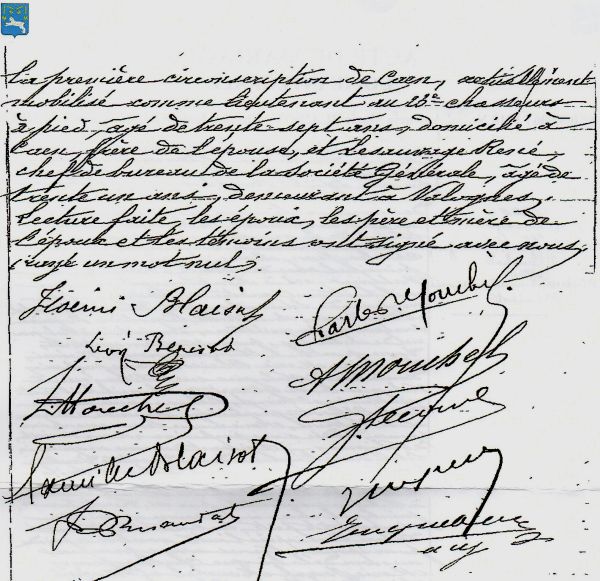 la première circonscription de Caen, actuellement
mobilisé comme lieutenant au 23e chasseurs
à pied, âgé de trente-sept ans, domicilié à
Caen, frère de l'épouse, et Lesauvage René,
chef de bureau de la Société Générale, âgé de
trente un ans, demeurant à Valognes.
Lecture faite, les époux, les père et mère de
l'époux et les témoins ont signé avec nous
rayé un mot nul.
Blaisot
Charles Mouchel
Léon
A Mouchel
Blaisot